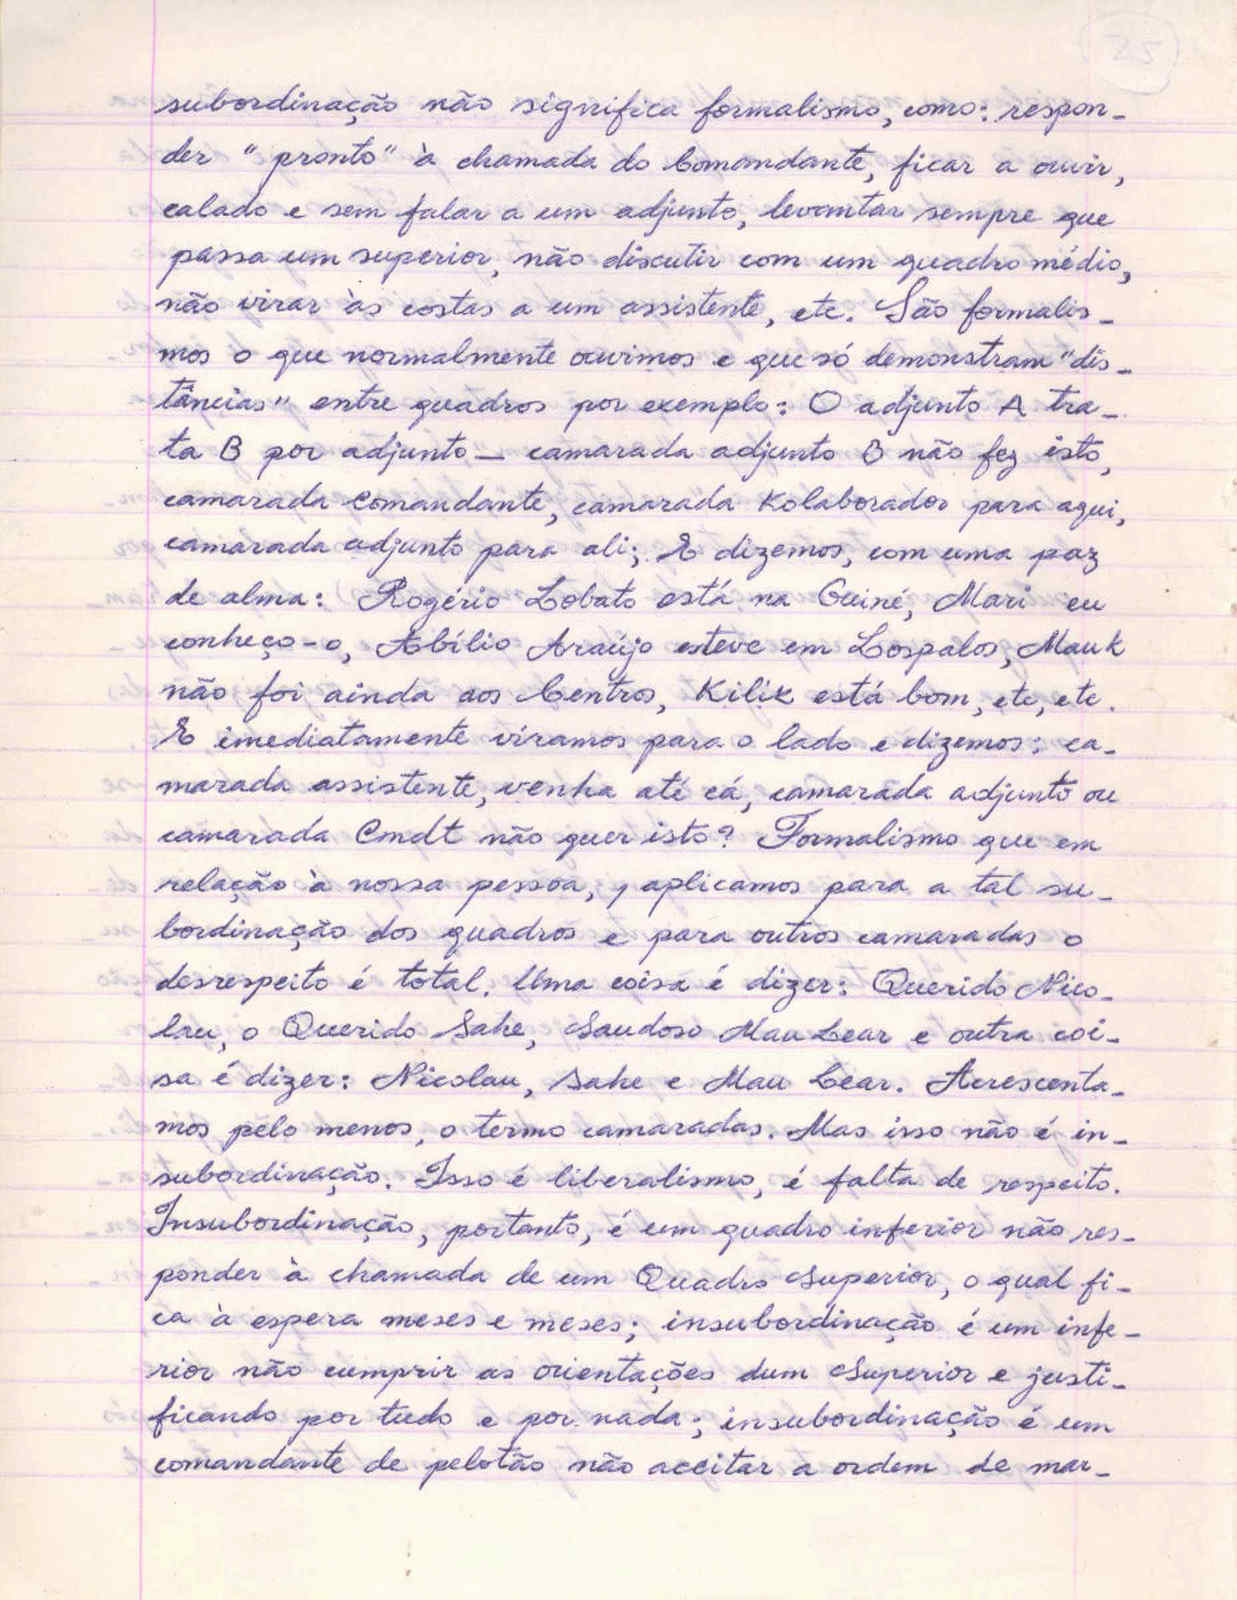 25
subordinação não significa formalismo, como: respon-
der "pronto" à chamada do Comandante, ficar a ouvir,
calado e sem falar a um adjunto, levantar sempre que
passa um superior, não discutir com um quadro médio,
não virar às costas a um assistente, etc. São formalis-
mos o que normalmente ouvimos e que só demonstram "dis-
tâncias" entre quadros por exemplo: O adjunto A tra-
ta B por adjunto — camarada adjunto B não fez isto,
camarada Comandante, camarada Kolaborador para aqui,
camarada adjunto para ali; E dizemos, com uma paz
de alma: Rogério Lobato está na Guiné, Mari eu
conheço-o, Abílio Araújo esteve em Lospalos, Mauk
não foi ainda aos Centros, Kilik está bom, etc, etc.
E imediatamente viramos para o lado e dizemos: ca-
marada assistente, venha até cá, camarada adjunto ou
camarada Cmdt não quer isto? Formalismo que em
relação à nossa pessoa, aplicamos para a tal su-
bordinação dos quadros e para outros camaradas o
desrespeito é total. Uma coisa é dizer: Querido Nico-
lau, o Querido Sahe, Saudoso Mau Lear e outra coi-
sa é dizer: Nicolau, Sahe e Mau Lear. Acrescenta-
mos pelo menos, o termo camaradas. Mas isso não é in-
subordinação. Isso é liberalismo, é falta de respeito.
Insubordinação, portanto, é um quadro inferior não res-
ponder à chamada de um Quadro Superior, o qual fi-
ca à espera meses e meses; insubordinação é um infe-
rior não cumprir as orientações dum Superior e justi-
ficando por tudo e por nada; insubordinação é um
comandante de pelotão não aceitar a ordem de mar-